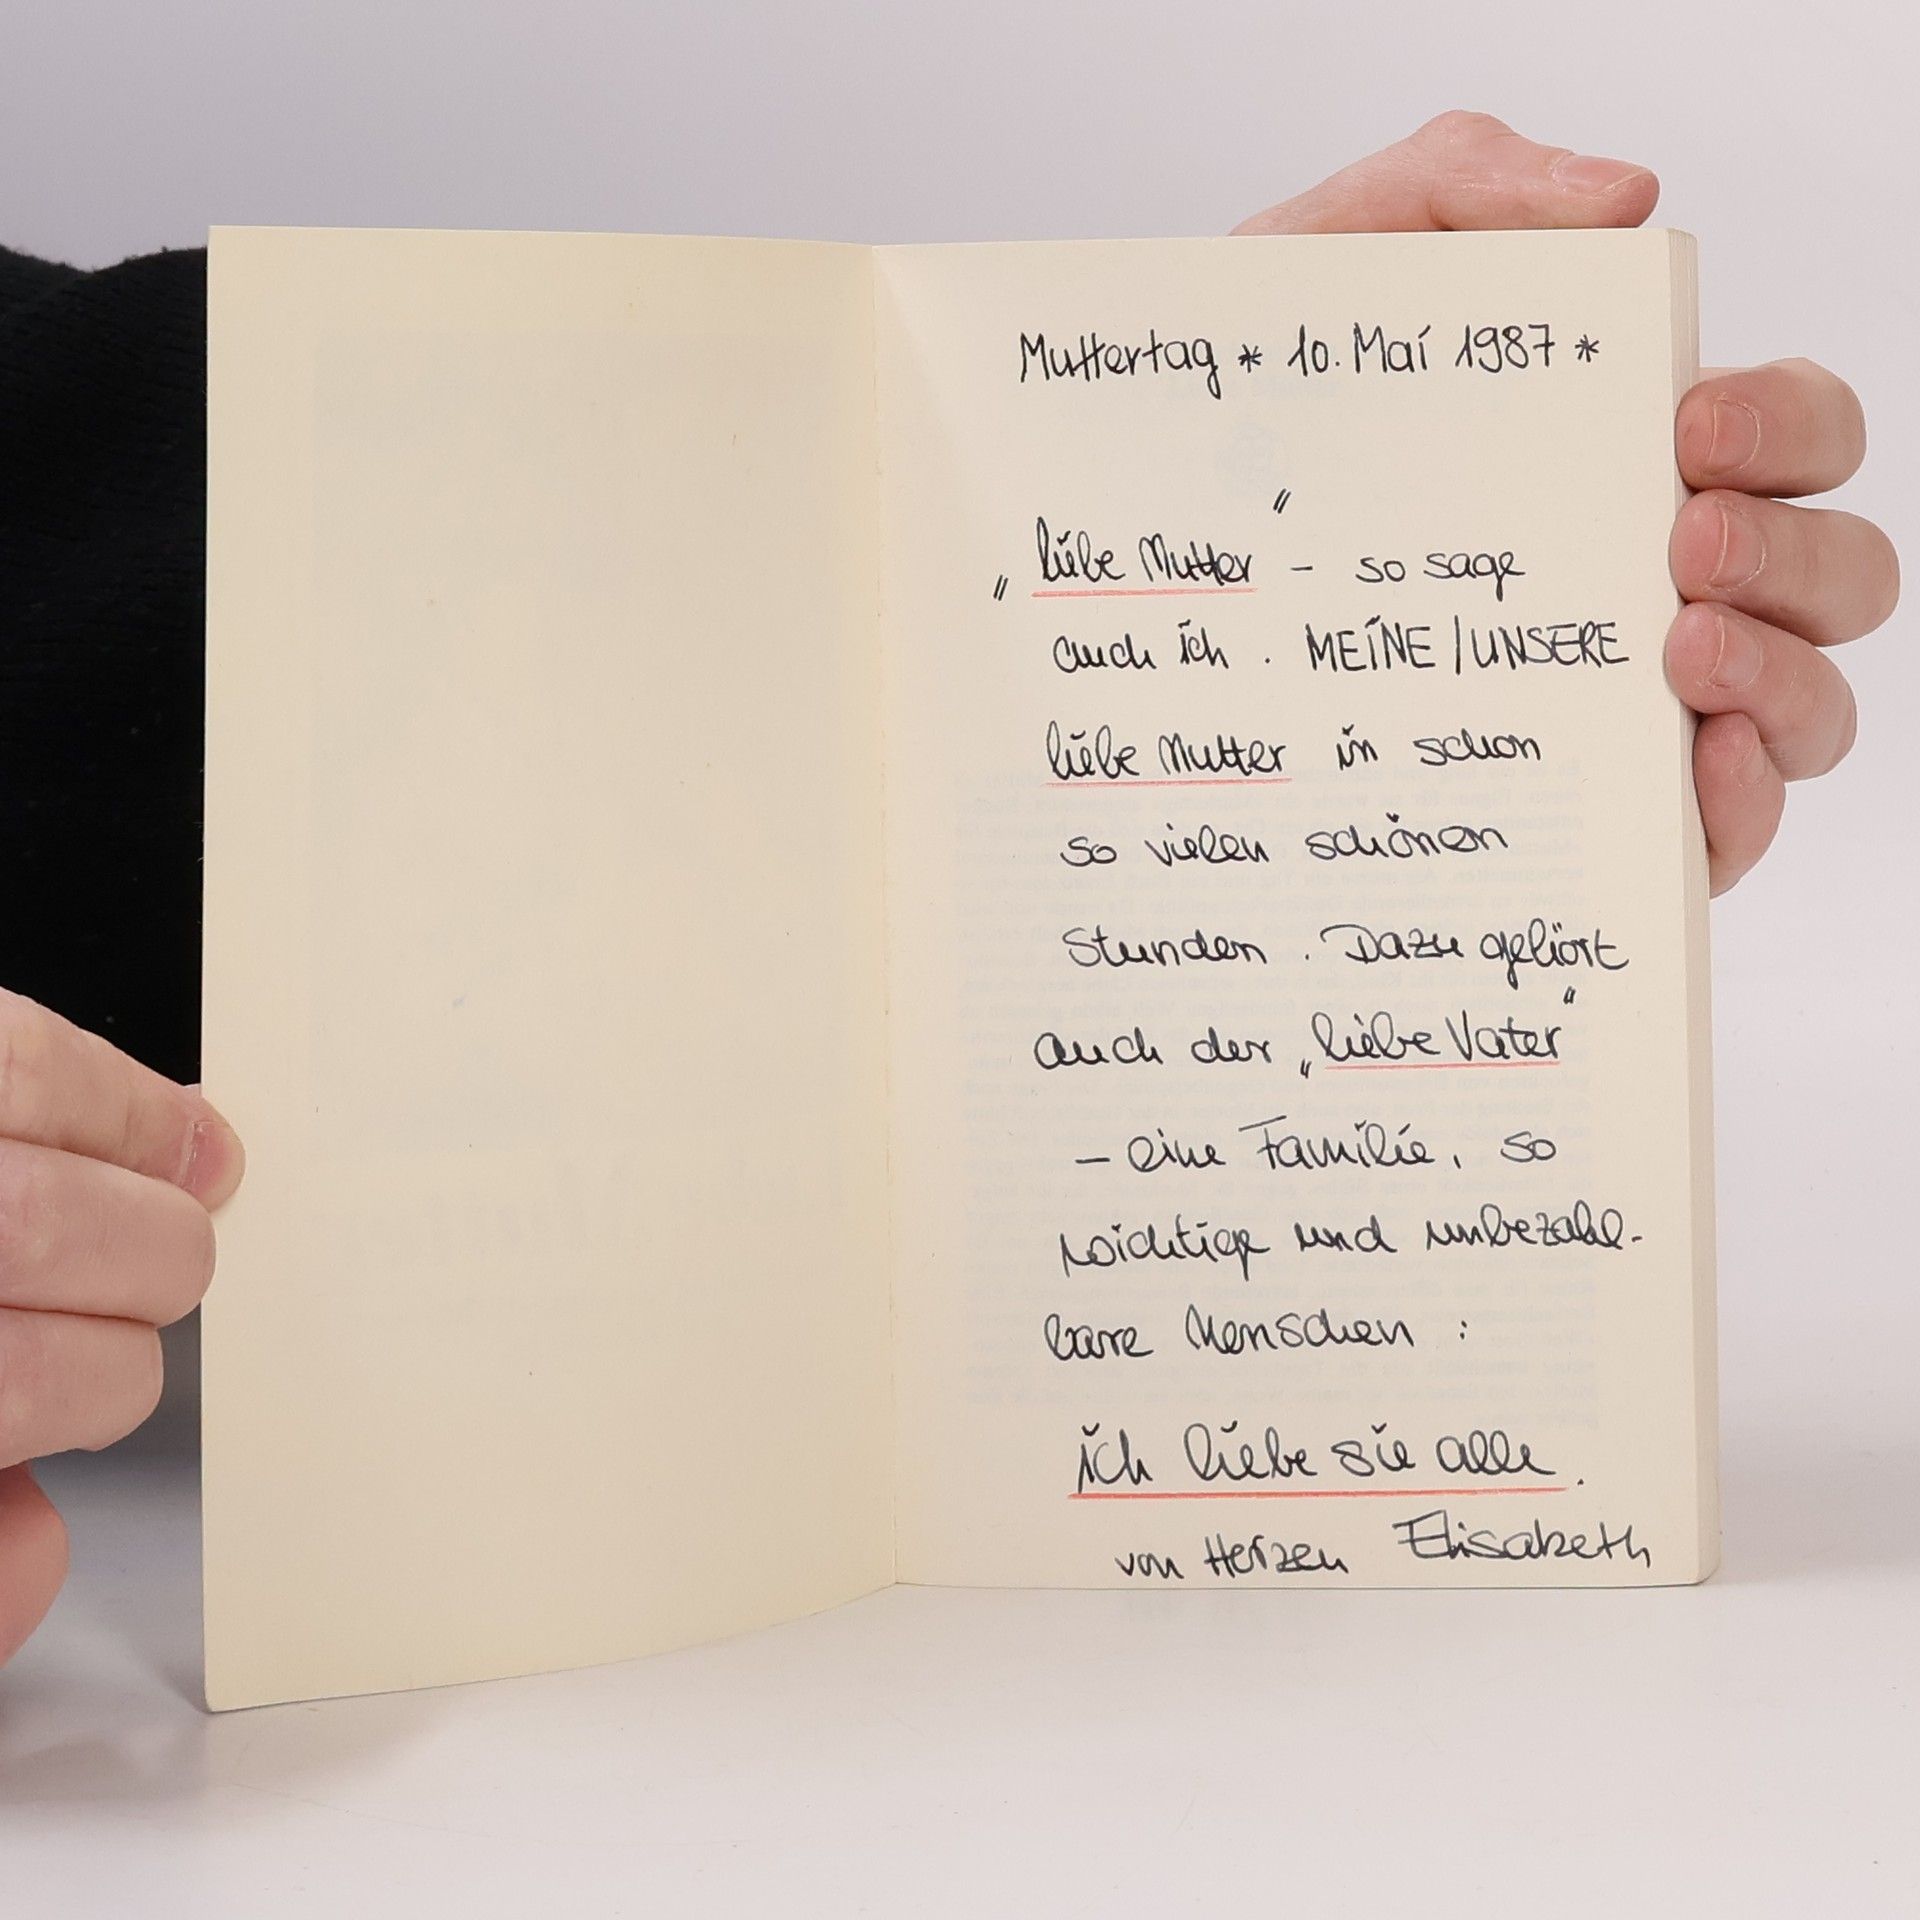 Muttertag * 10. Mai 1987 *
„liebe Mutter" – so sage
auch ich. MEINE / UNSERE
liebe Mutter in schon
so vielen schönen
Stunden. Dazu gehört
auch der „liebe Vater"
– eine Familie, so
wichtige und unbezahl-
bare Menschen :
ich liebe sie alle.
von Herzen Elisabeth